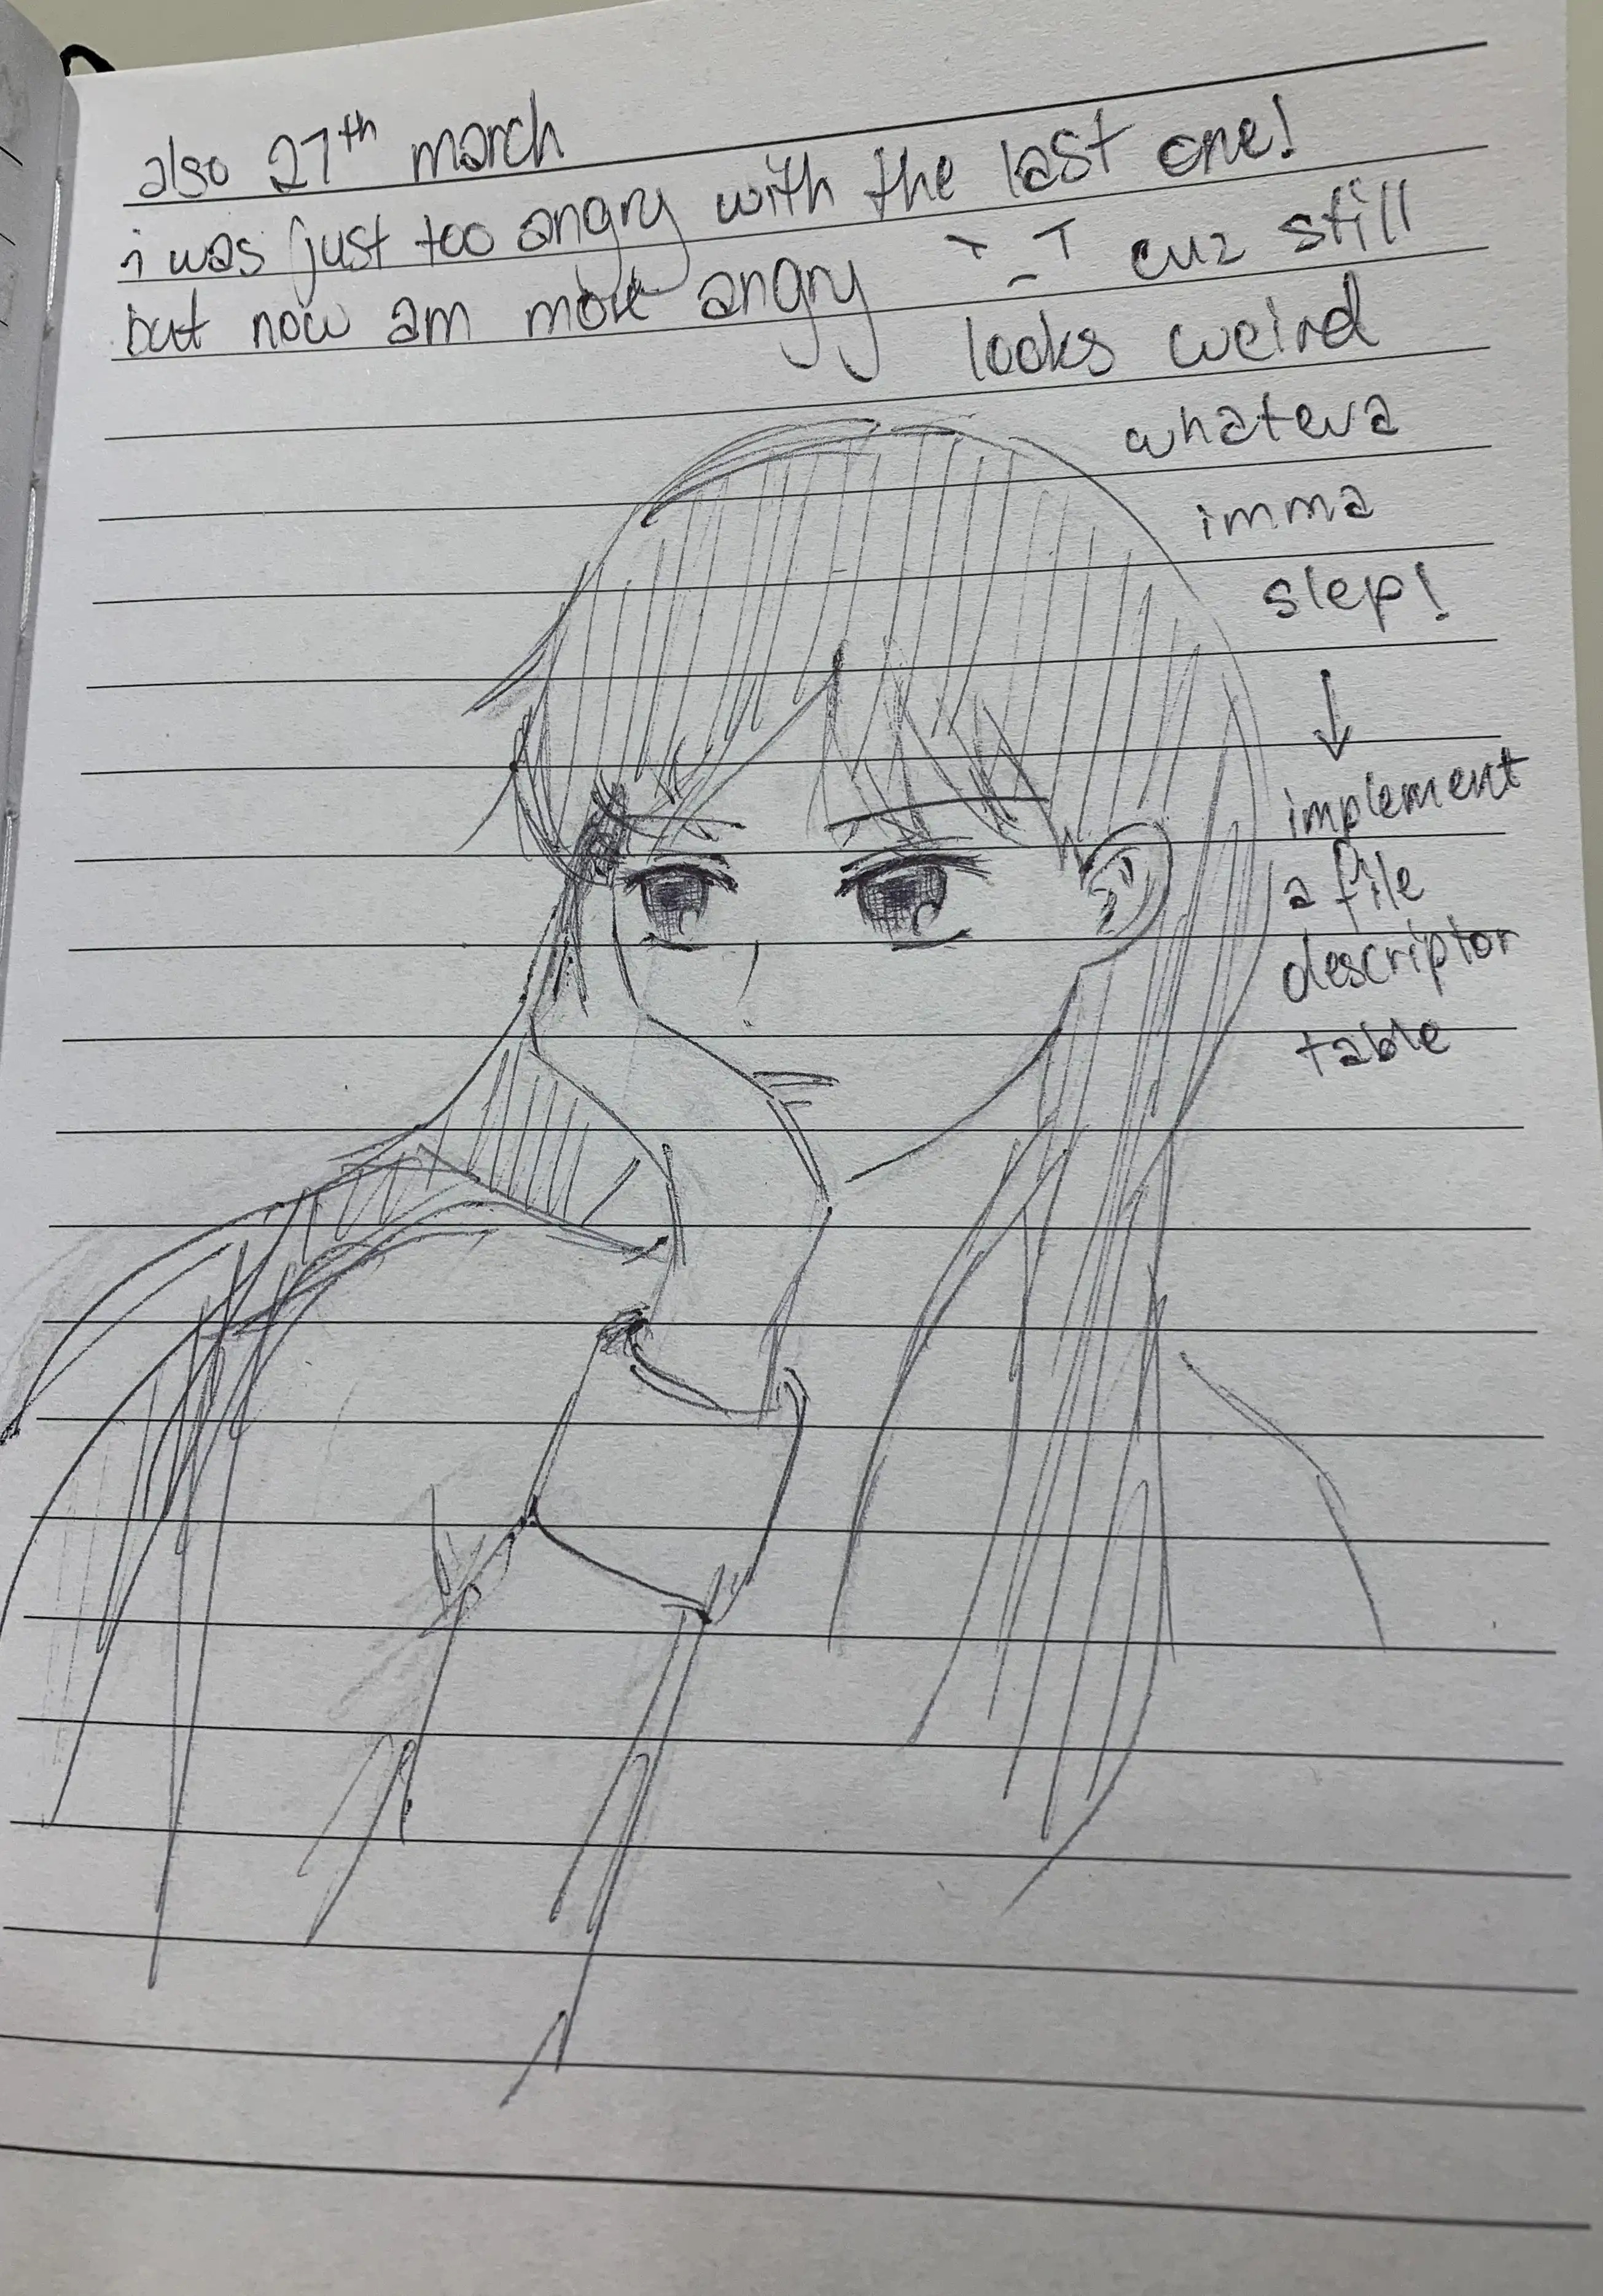 also 27th march
i was just too angry with the last one!
but now am more angry `_T cuz still
looks weird
whateva
imma
slep!
↓
implement
a file
descriptor
table